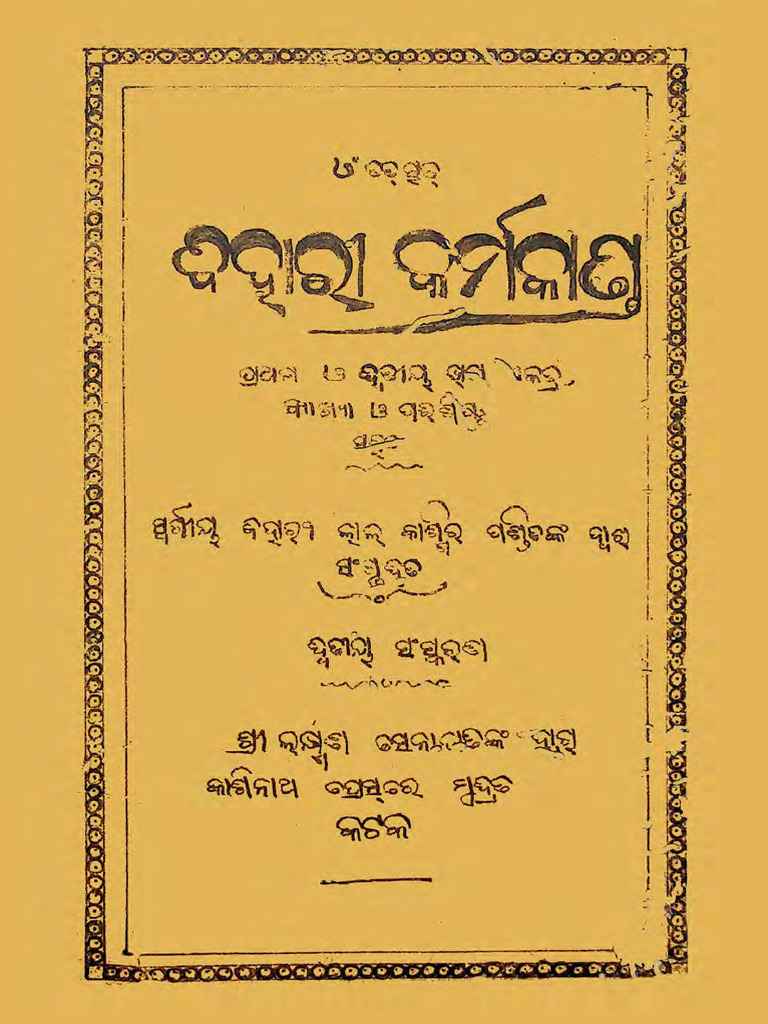 ଓଁ ତତ୍ସତ୍
ବିହାରୀ କର୍ମକାଣ୍ଡ
ପ୍ରଥମ ଓ ଦ୍ୱିତୀୟ ଖଣ୍ଡ ଏକତ୍ର,
ବ୍ୟାଖ୍ୟା ଓ ପରିଶିଷ୍ଟ
ସହ
ସ୍ୱର୍ଗୀୟ ବିହାରୀ ଲାଲ୍ ପଣ୍ଡିତଙ୍କ ଦ୍ୱାରା
ସଂଗୃହୀତ
ଦ୍ୱିତୀୟ ସଂସ୍କରଣ
ଶ୍ରୀ ଲକ୍ଷ୍ମଣ ସେନାପତିଙ୍କ ଦ୍ୱାରା
କାଶିନାଥ ପ୍ରେସ୍‌ରେ ମୁଦ୍ରିତ
କଟକ